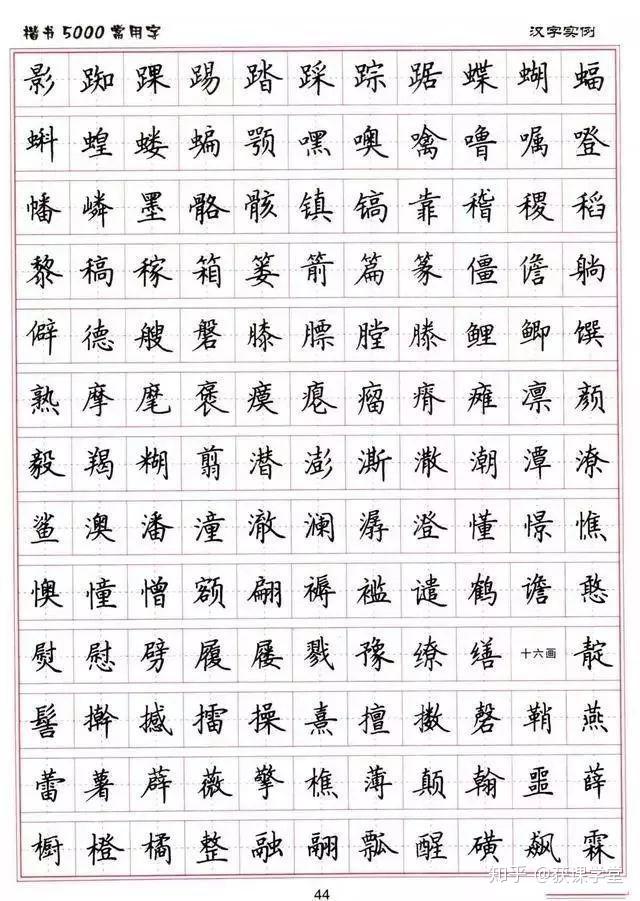 楷书5000常用字 汉字实例
影 踟 踝 踢 踏 踩 踪 踞 蝶 蝴 蝠
蝌 蝗 蝼 蝙 颚 嘿 噢 噙 噜 嘱 噔
幡 嶙 墨 骼 骸 镇 镐 靠 稽 稷 稻
黎 稿 稼 箱 篓 箭 篇 篆 僵 儋 躺
僻 德 艘 磐 膝 膘 膛 滕 鲤 鲫 馔
熟 摩 麾 褒 瘼 瘪 瘤 瘠 瘫 凛 颜
毅 羯 糊 翦 潜 澎 澌 潵 潮 潭 潦
鲨 澳 潘 潼 澈 澜 潺 澄 懂 憬 憔
懊 憧 憎 额 翩 褥 褴 谴 鹤 谵 憨
熨 慰 劈 履 屦 戮 豫 缭 缮 十六画 靛
髻 擀 撼 擂 操 熹 擅 擞 磬 鞘 燕
蕾 薯 薜 薇 擎 樵 薄 颠 翰 噩 薛
橱 橙 橘 整 融 翮 瓢 醒 磺 飙 霖
知乎 @获课学堂
44